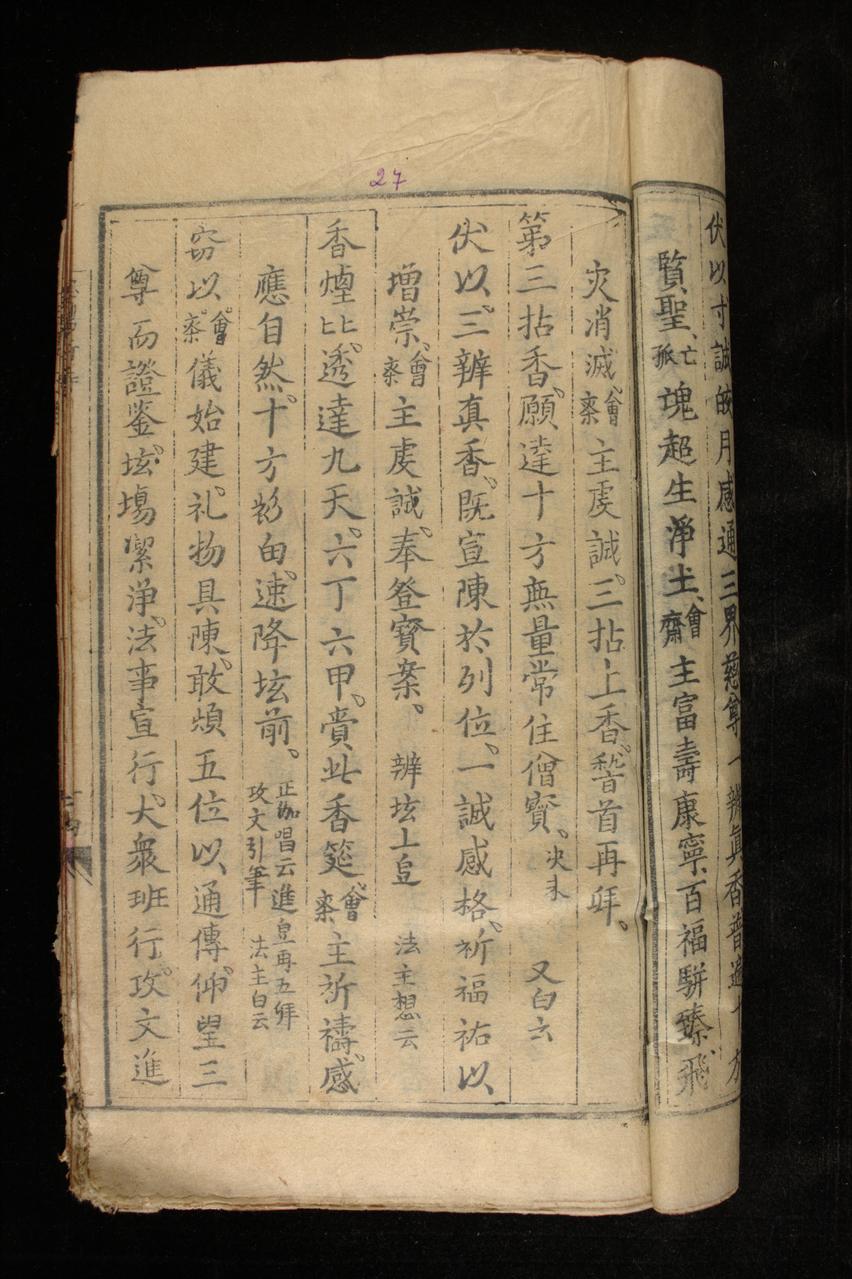 27
伏以寸誠皎月感通三界慈尊一辨真香普遍十方
賢聖亡孤塊超生淨土會齋主富壽康寧百福駢臻飛
灾消滅會齋主虔誠三拈上香𥡴首再拜
第三拈香願達十方無量常住僧寳 又白云
伏以三辨真香既宣陳於列位一誠感格祈福祐以
增崇會齋主虔誠奉登寳案 辨坛上皇 法主想云
香煙比比透達九天六丁六甲賫此香筵會齋主祈禱感
應自然十方勑由速降坛前 正伽唱云進皇再五拜攻文引筆 法主白云
窃以會齋儀始建礼物具陳敢煩五位以通傳仰望三
尊而證鉴坛塲潔淨法事宣行大衆班行攻文進